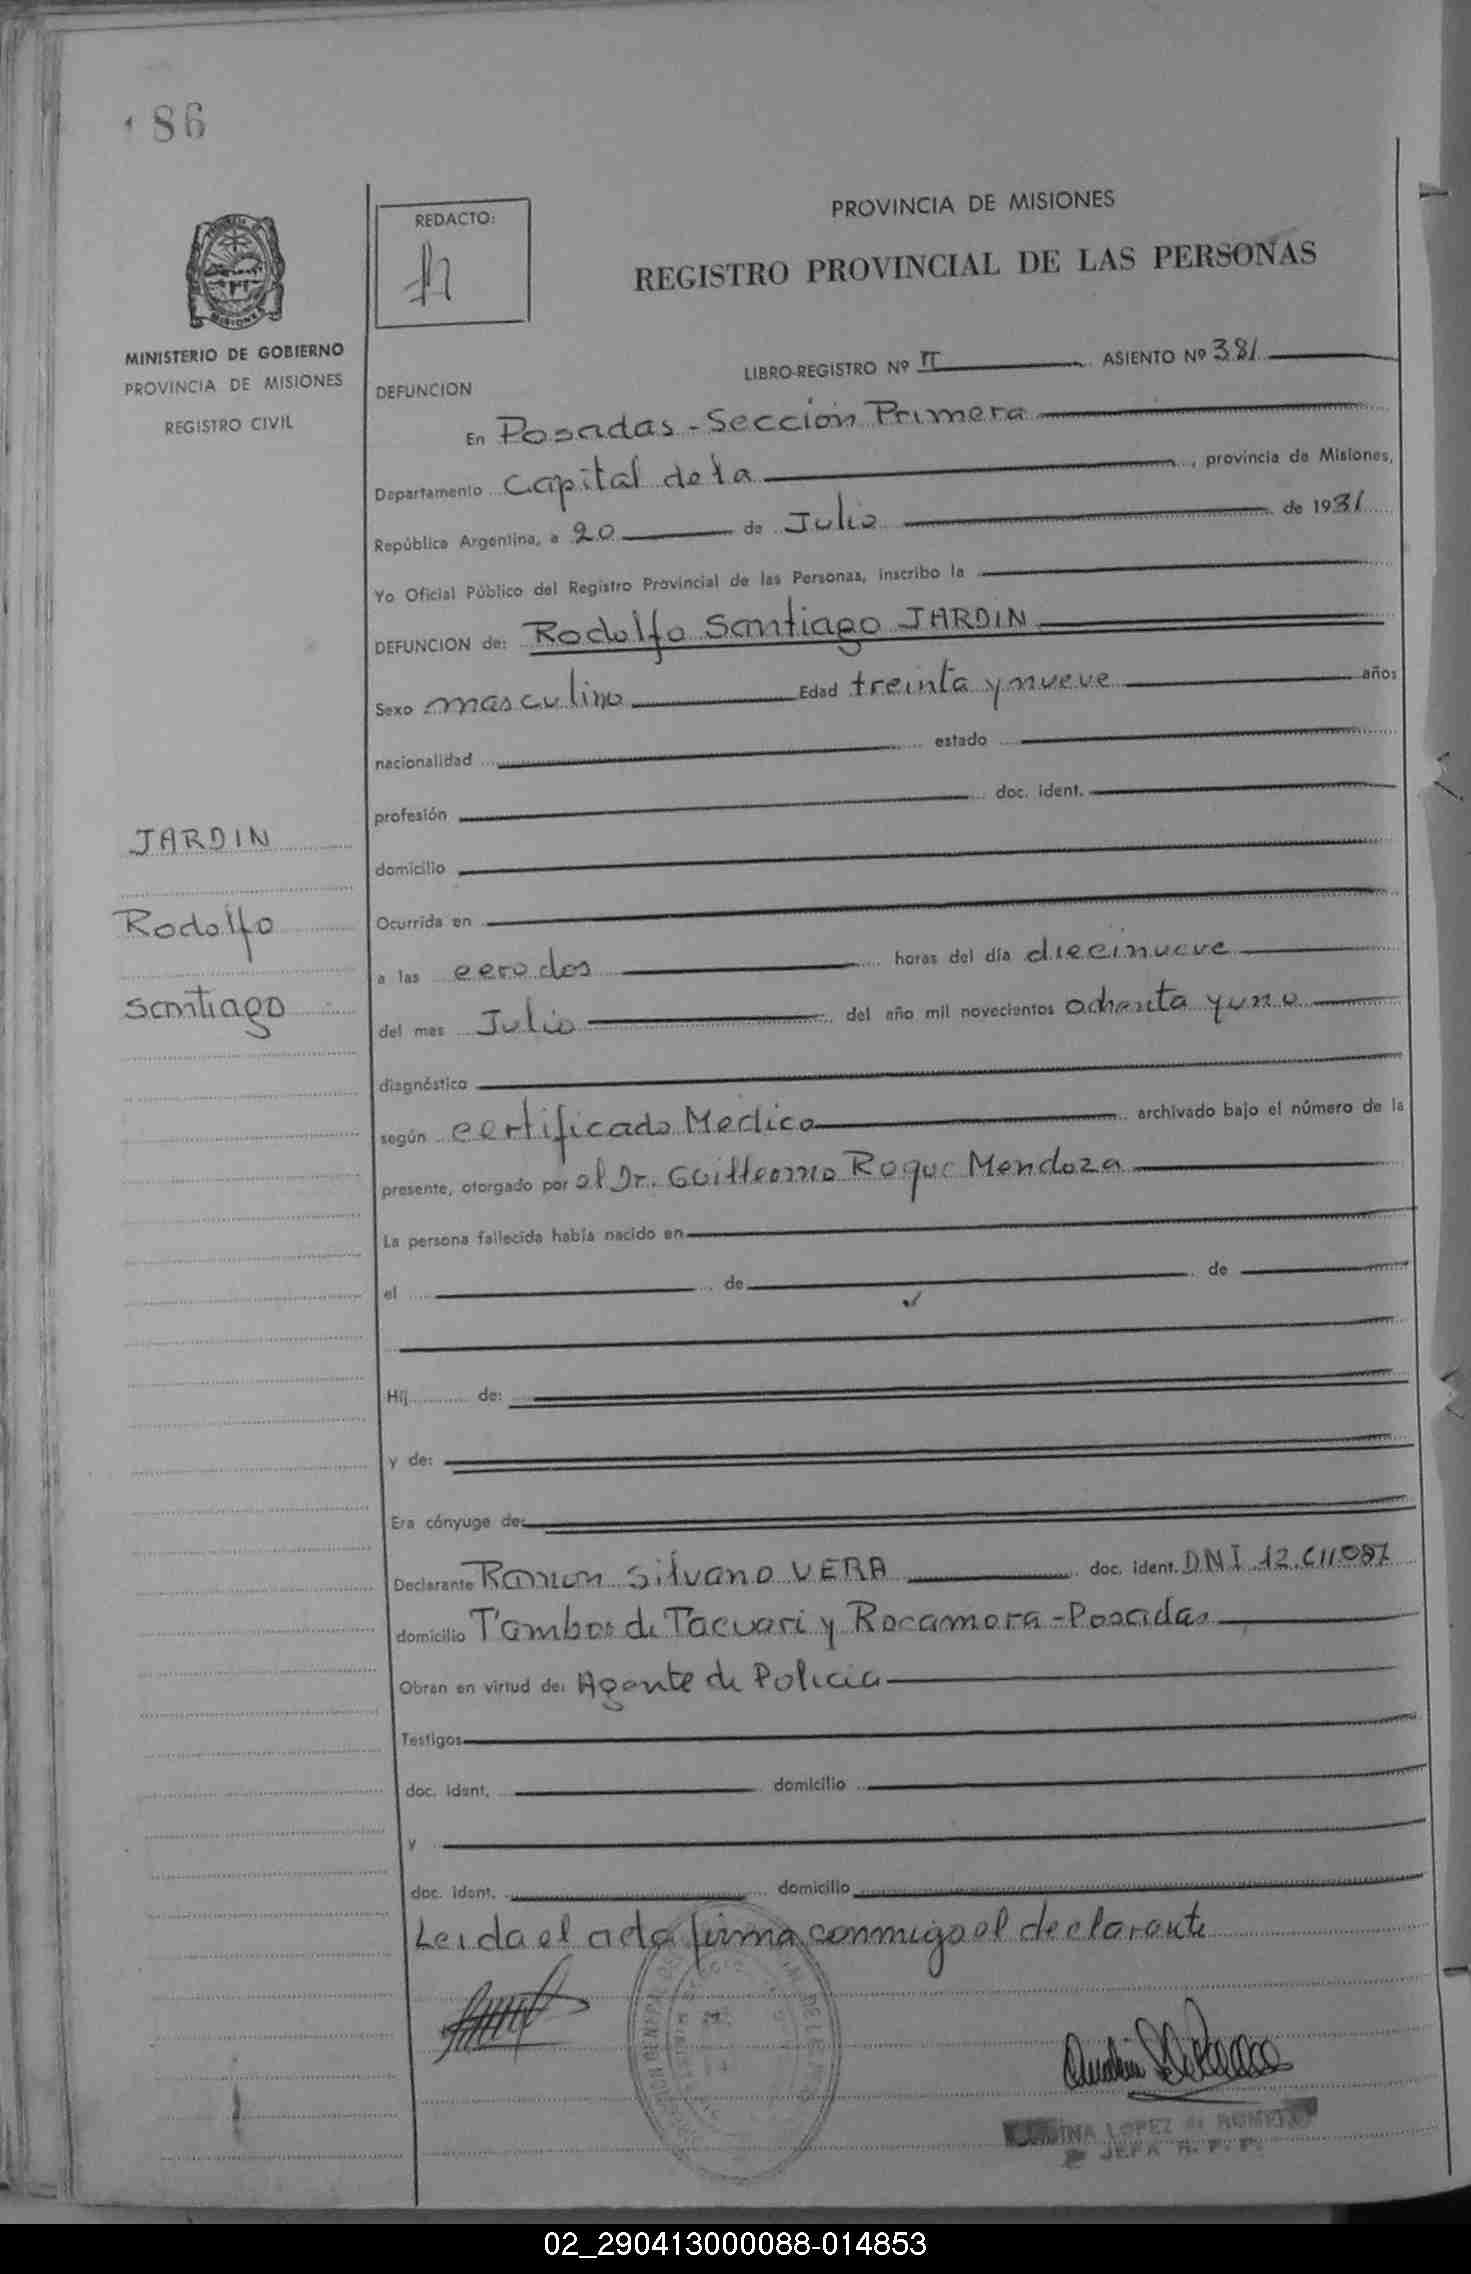 186
REDACTO:
PROVINCIA DE MISIONES
REGISTRO PROVINCIAL DE LAS PERSONAS
MISIONES
MINISTERIO DE GOBIERNO
PROVINCIA DE MISIONES
REGISTRO CIVIL
LIBRO-REGISTRO Nº II ASIENTO Nº 381
DEFUNCION
En Posadas - Sección Primera
Departamento Capital de la, provincia de Misiones,
República Argentina, a 20 de Julio de 1981
Yo Oficial Público del Registro Provincial de las Personas, inscribo la
DEFUNCION de: Rodolfo Santiago JARDIN
Sexo masculino Edad treinta y nueve años
nacionalidad estado
profesión doc. ident.
domicilio
Ocurrida en
a las cero dos horas del día diecinueve
del mes Julio del año mil novecientos ochenta y uno
diagnóstico
según certificado Medico archivado bajo el número de la
presente, otorgado por el Dr. Guillermo Roque Mendoza
La persona fallecida había nacido en
el de de
Hij de:
y de:
Era cónyuge de:
Declarante Ramon Silvano VERA doc. ident. DNI 12.611087
domicilio Tambor de Tacuari y Rocamora - Posadas
Obran en virtud de: Agente de Policia
Testigos
doc. ident. domicilio
y
doc. ident. domicilio
Leida el acta firma conmigo el declarante
JARDIN
Rodolfo
Santiago
LOPEZ de ROMERO
JEFA R. P. P.
02_290413000088-014853